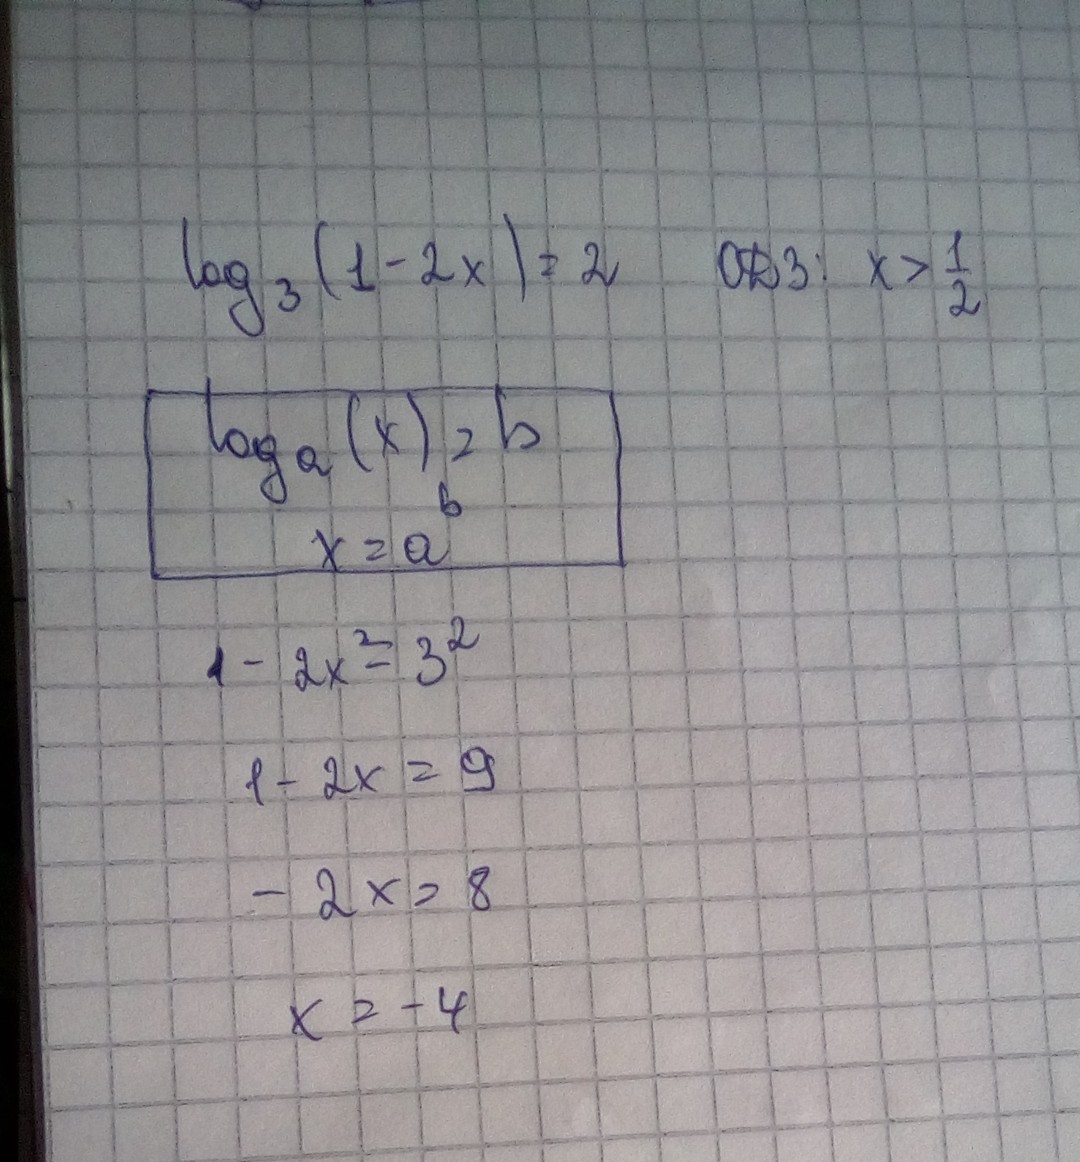 log₃(1-2x)=2 ОДЗ: x>1/2
logₐ(x)=b
x=aᵇ
1-2x=3²
1-2x=9
-2x=8
x=-4